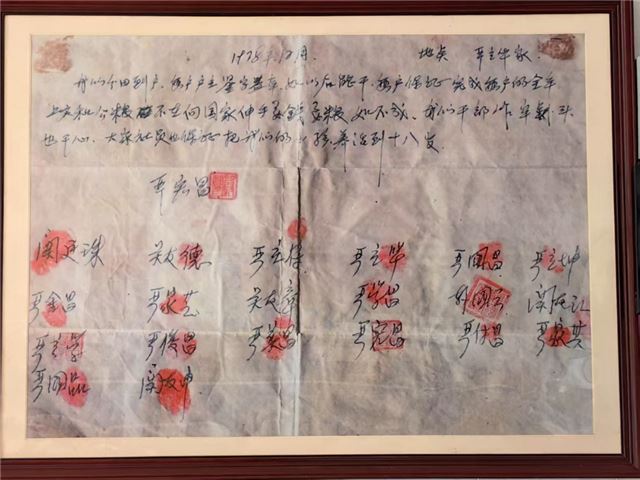 1978年12月. 地点 严立华家.
我们分田到户,每户户主签字盖章,如以后能干,每户保证完成每户的全年
上交和公粮不在向国家伸手要钱要粮,如不成,我们干部作牢刹头
也干心,大家社员也保证把我们的小孩养活到十八岁.
严宏昌
关廷珠 关友德 严立符 严立华 严国昌 严立坤
严金昌 严家芝 关友章 严学昌 韩国云 关友江
严立学 严俊昌 严美昌 严宏昌 严付昌 严家其
严国品 关友申